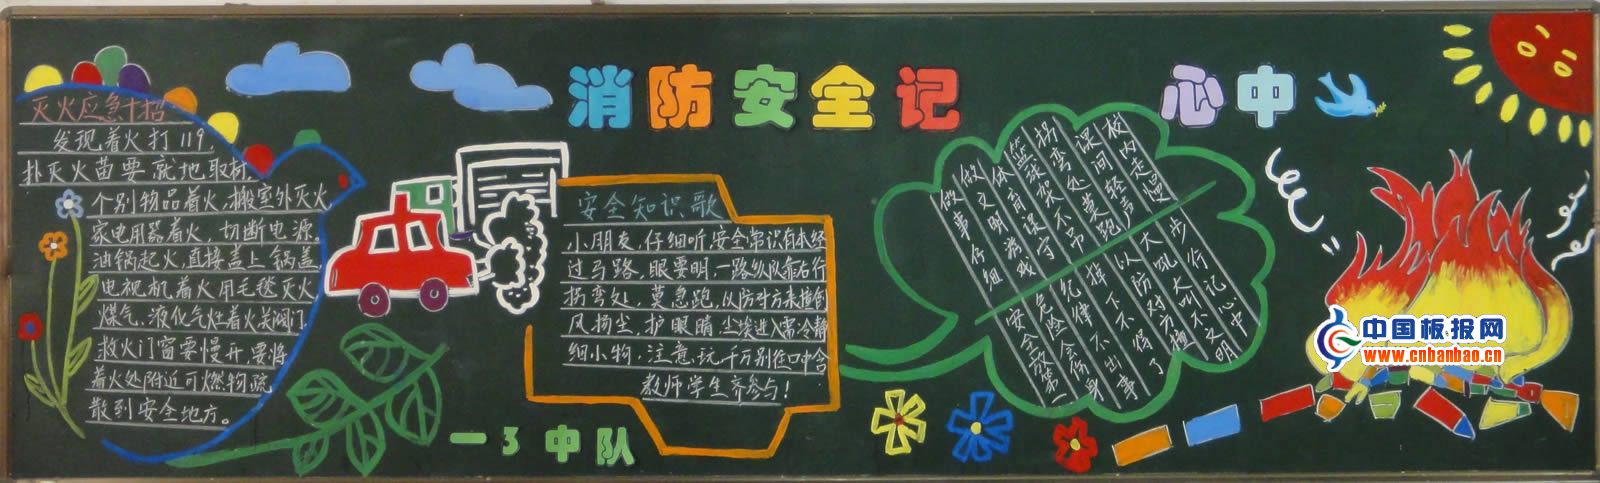 消防安全记
心中
灭火应急十招
发现着火打119,
扑灭火苗要就地取材,
个别物品着火,搬室外灭火,
家电用器着火,切断电源。
油锅起火,直接盖上锅盖,
电视机着火用毛毯灭火
煤气、液化气灶着火关阀门,
救火门窗要慢开,要将
着火处附近可燃物疏
散到安全地方。
安全知识歌
小朋友,仔细听,安全常识有本经
过马路,眼要明,一路纵队靠右行
拐弯处,莫急跑,以防对方来撞倒
风扬尘,护眼睛,尘埃进入需冷静
细小物,注意玩,千万别往口中含
教师学生齐参与!
一3中队
校内走慢步行记心中
课间轻声大吼大叫不文明
拐弯处莫跑以防对方撞了
篮球架不吊探下不得
体育课守纪律不出事
做文明游戏危险会伤身
做事仔细安全放第一
中国板报网
www.cnbanbao.cn